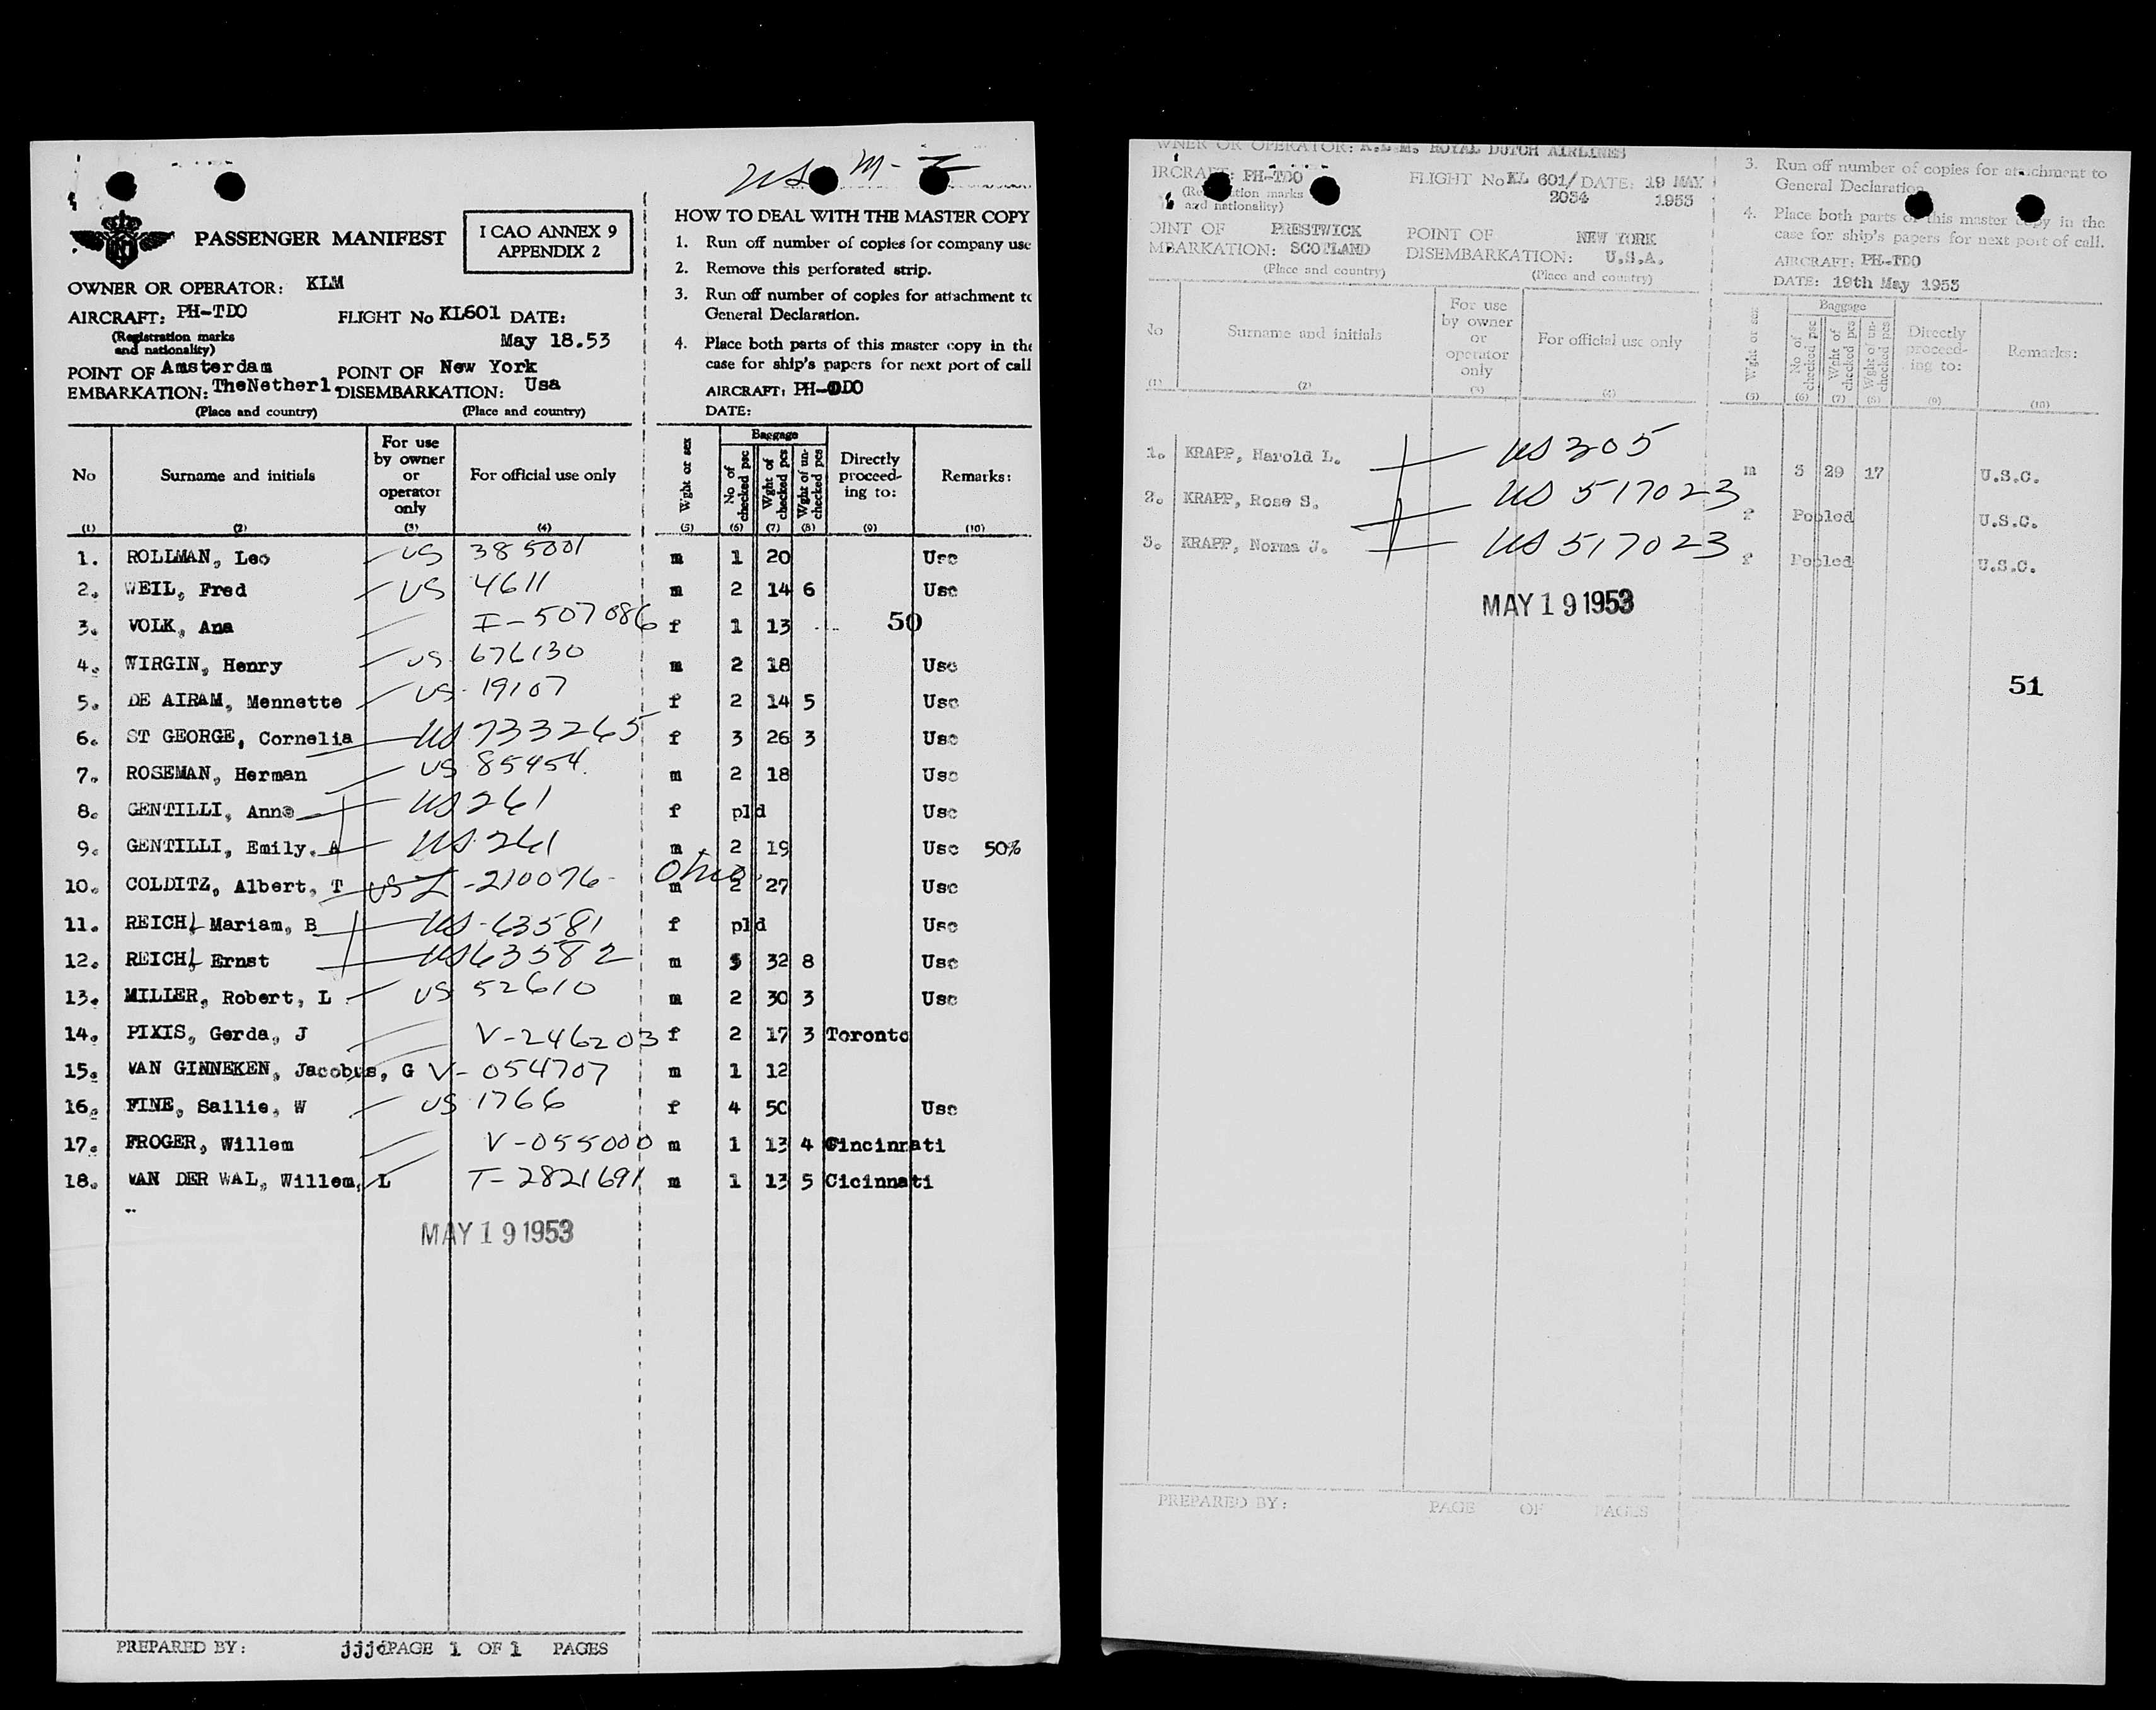 US M-Z
PASSENGER MANIFEST
I CAO ANNEX 9
APPENDIX 2
OWNER OR OPERATOR: KLM
AIRCRAFT: PH-TDO
(Registration marks
and nationality)
FLIGHT No KL601 DATE:
May 18.53
POINT OF Amsterdam
EMBARKATION: TheNetherl.
(Place and country)
POINT OF New York
DISEMBARKATION: Usa
(Place and country)
HOW TO DEAL WITH THE MASTER COPY
1. Run off number of copies for company use
2. Remove this perforated strip.
3. Run off number of copies for attachment to
General Declaration.
4. Place both parts of this master copy in the
case for ship's papers for next port of call
AIRCRAFT: PH-DDO
DATE:
No (1)
Surname and initials (2)
For use by owner or operator only (3)
For official use only (4)
Wght or sex (5)
Baggage
No of checked psc (6)
Wght of checked pcs (7)
Wght of un-checked pcs (8)
Directly proceed-ing to: (9)
Remarks: (10)
1. ROLLMAN, Leo US 385001 m 1 20 Usc
2. WEIL, Fred US 4611 m 2 14 6 Usc
3. VOLK, Ana I-507086 f 1 13 50
4. WIRGIN, Henry US 676130 m 2 18 Usc
5. DE AIRAM, Mennette US 19107 f 2 14 5 Usc
6. ST GEORGE, Cornelia US 733265 f 3 26 3 Usc
7. ROSEMAN, Herman US 85454 m 2 18 Usc
8. GENTILLI, Anne US 261 f pld Usc
9. GENTILLI, Emily. A US 261 m 2 19 Usc 50%
10. COLDITZ, Albert, T US I-210076- Ohio m 2 27 Usc
11. REICHL Mariam, B US-63581 f pld Usc
12. REICHL Ernst US 63582 m 5 32 8 Usc
13. MILLER, Robert, L US 52610 m 2 30 3 Usc
14. PIXIS, Gerda, J V-246203 f 2 17 3 Toronto
15. VAN GINNEKEN, Jacobus, G V-054707 m 1 12
16. FINE, Sallie, W US 1766 f 4 50 Usc
17. FROGER, Willem V-055000 m 1 13 4 Cincinnati
18. VAN DER WAL, Willem, L T-2821691 m 1 13 5 Cicinnati
MAY 19 1953
PREPARED BY: PAGE 1 OF 1 PAGES
WNER OR OPERATOR: K.L.M. ROYAL DUTCH AIRLINES
IRCRAFT: PH-TDO
and nationality)
FLIGHT No KL 601/ DATE: 19 MAY
2034 1953
OINT OF PRESTWICK
MBARKATION: SCOTLAND
(Place and country)
POINT OF NEW YORK
DISEMBARKATION: U.S.A.
(Place and country)
3. Run off number of copies for attachment to
General Declaration
4. Place both parts of this master copy in the
case for ship's papers for next port of call.
AIRCRAFT: PH-TDO
DATE: 19th May 1953
No (1)
Surname and initials (2)
For use by owner or operator only (3)
For official use only (4)
Wght or sex (5)
Baggage
No of checked psc (6)
Wght of checked pcs (7)
Wght of un-checked pcs (8)
Directly proceed-ing to: (9)
Remarks: (10)
1. KRAPP, Harold L. US 305 m 3 29 17 U.S.C.
2. KRAPP, Rose S. US 517023 f Pooled U.S.C.
3. KRAPP, Norma J. US 517023 f Pooled U.S.C.
MAY 19 1953
51
PREPARED BY: PAGE OF PAGES